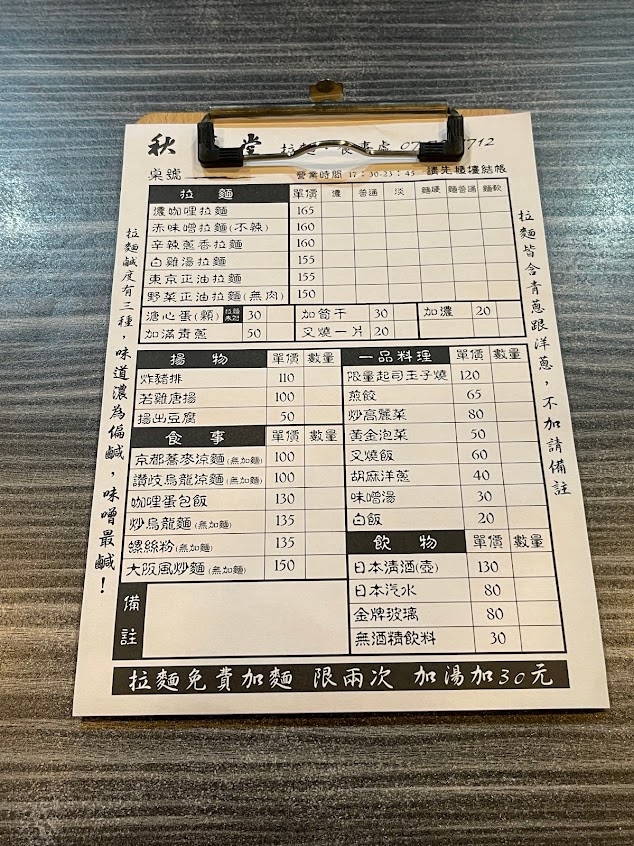 秋 堂 拉麵·食事處 07 712
桌號 營業時間 17:30-23:45 請先櫃檯結帳
拉麵鹹度有三種，味道濃為偏鹹，味噌最鹹！
拉麵 單價 濃 普通 淡 麵硬 麵普通 麵軟
濃咖哩拉麵 165
赤味噌拉麵(不辣) 160
辛辣蔥香拉麵 160
白雞湯拉麵 155
東京正油拉麵 155
野菜正油拉麵(無肉) 150
溏心蛋(顆) 30 加筍干 30 加濃 20
加滿青蔥 50 叉燒一片 20
揚物 單價 數量
炸豬排 110
若雞唐揚 100
揚出豆腐 50
食事 單價 數量
京都蕎麥涼麵(無加麵) 100
讚岐烏龍涼麵(無加麵) 100
咖哩蛋包飯 130
炒烏龍麵(無加麵) 135
螺絲粉(無加麵) 135
大阪風炒麵(無加麵) 150
備註
一品料理 單價 數量
限量起司玉子燒 120
煎餃 65
炒高麗菜 80
黃金泡菜 50
叉燒飯 60
胡麻洋蔥 40
味噌湯 30
白飯 20
飲物 單價 數量
日本清酒(壺) 130
日本汽水 80
金牌玻璃 80
無酒精飲料 30
拉麵皆含青蔥跟洋蔥，不加請備註
拉麵免費加麵 限兩次 加湯加30元